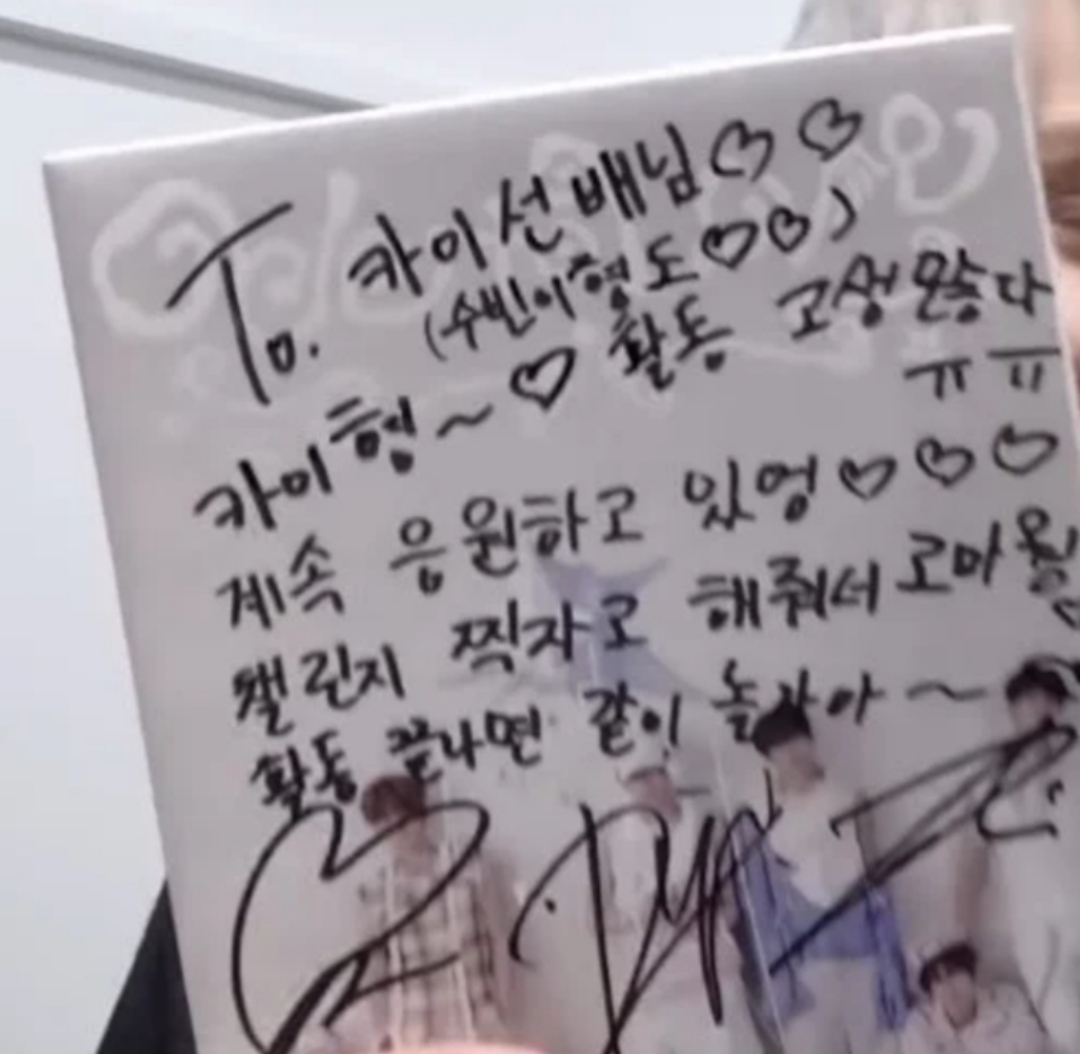 To. 카이선배님♡♡
(수빈이형도♡♡)
카이형~♡ 활동 고생많다
ㅠㅠ
계속 응원하고 있엉♡♡♡
챌린지 찍자고 해줘서 고마웡
활동 끝나면 같이 놀자아~